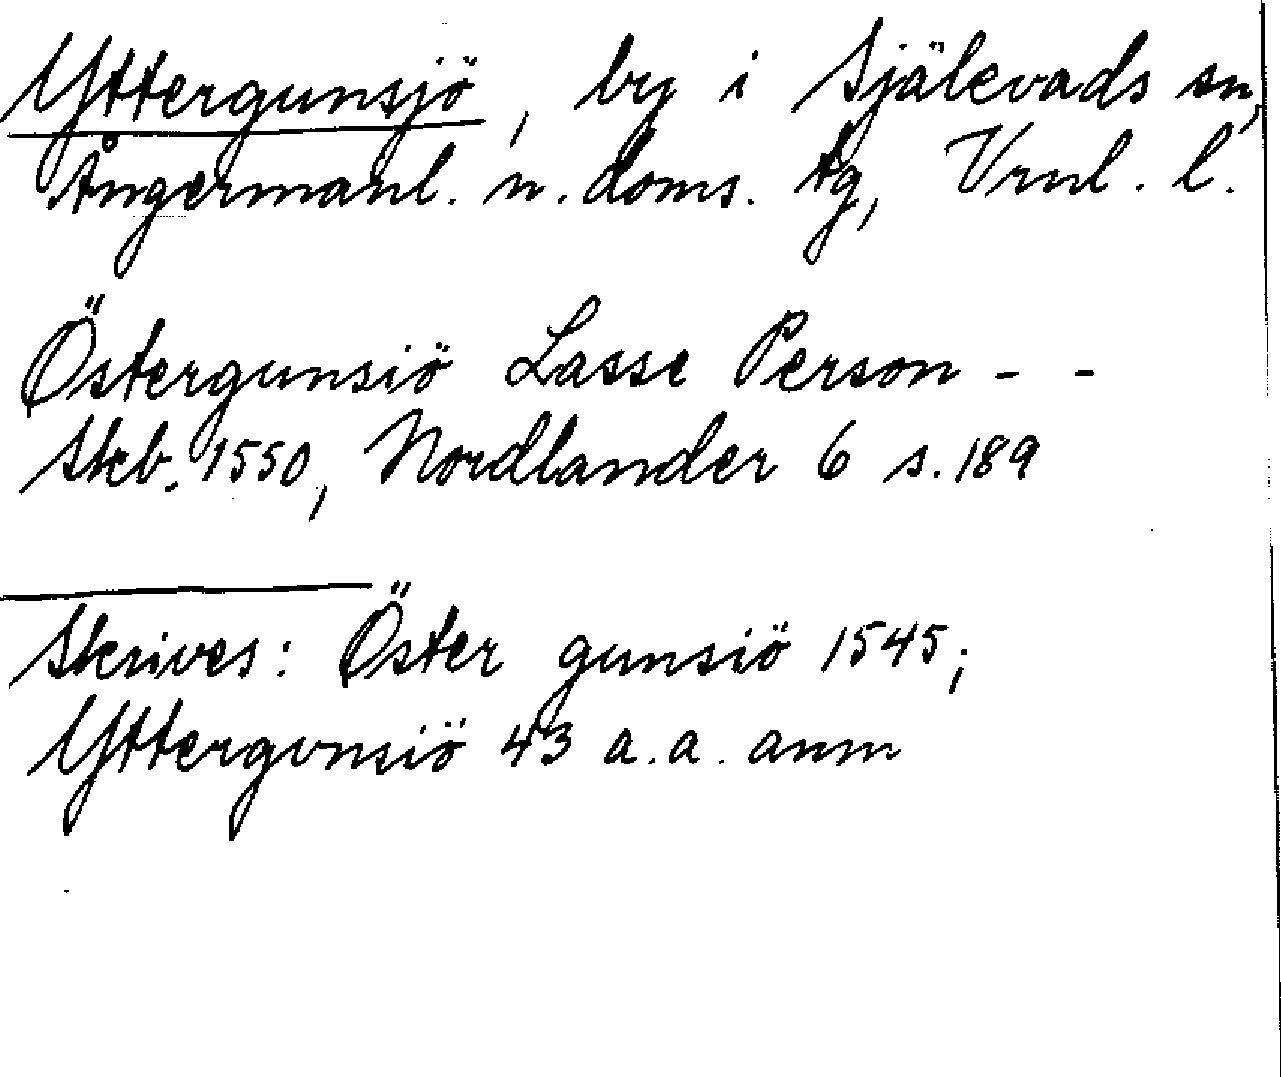 Yttergunsjö, by i Själevads sn,
Ångermanl. n. doms. tg, Vrnl. l.
Östergunsiö Lasse Person - -
Skb. 1550, Nordlander 6 s. 189
Skrives: Öster gunsiö 1545;
Yttergvnsiö 43 a. a. anm